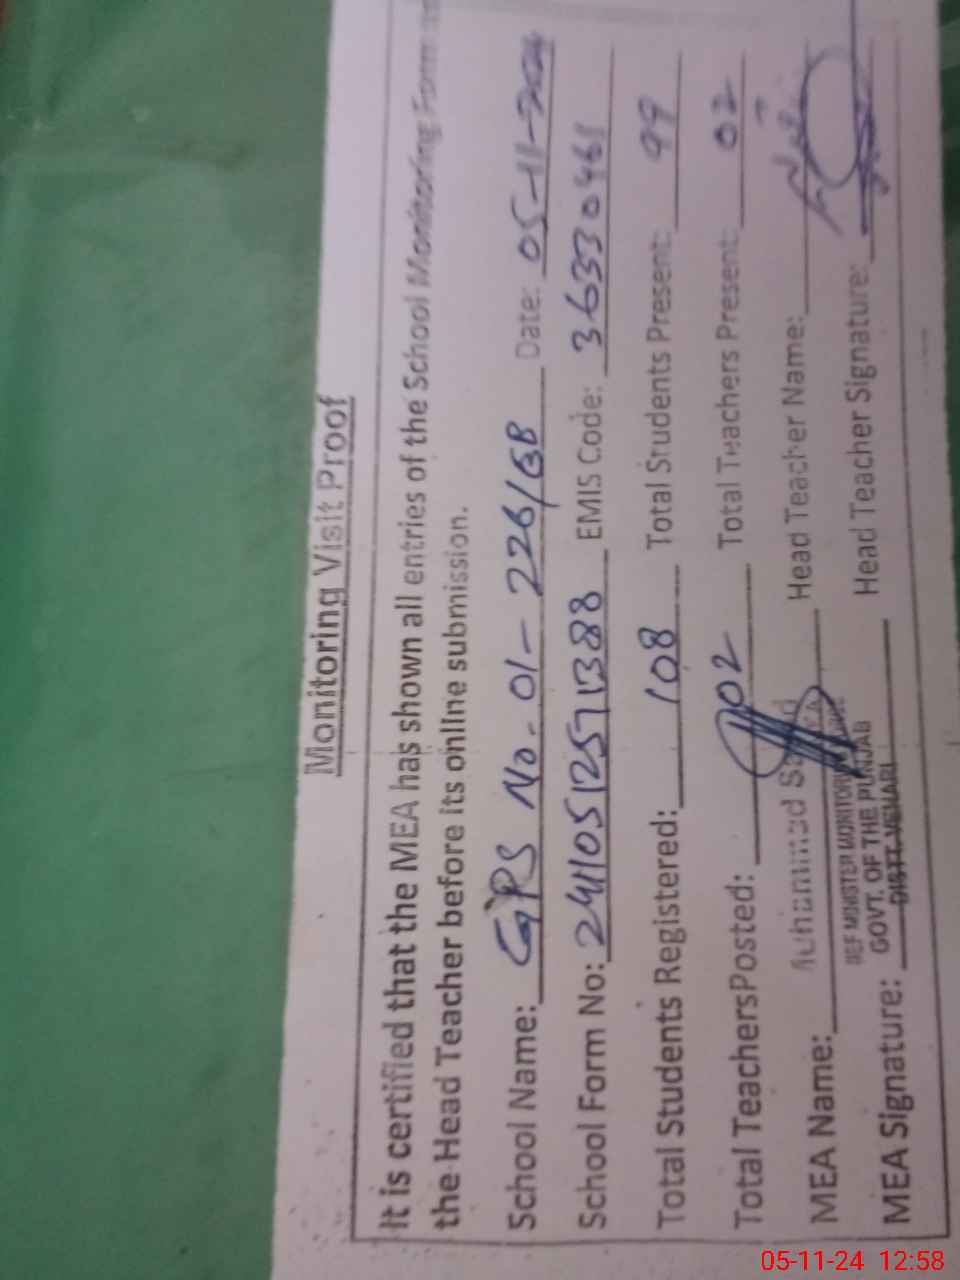 Monitoring Visit Proof
It is certified that the MEA has shown all entries of the School Monitoring Form
the Head Teacher before its online submission.
School Name: GPS No-01-226/GB Date: 05-11-2024
School Form No: 2411051257 1388 EMIS Code: 36330461
Total Students Registered: 108 Total Students Present: 99
Total TeachersPosted: 02 Total Teachers Present: 02
MEA Name: Muhammad Head Teacher Name:
MINISTER MONITORING
GOVT. OF THE PUNJAB
DISTT. VEHARI
MEA Signature: Head Teacher Signature:
05-11-24 12:58